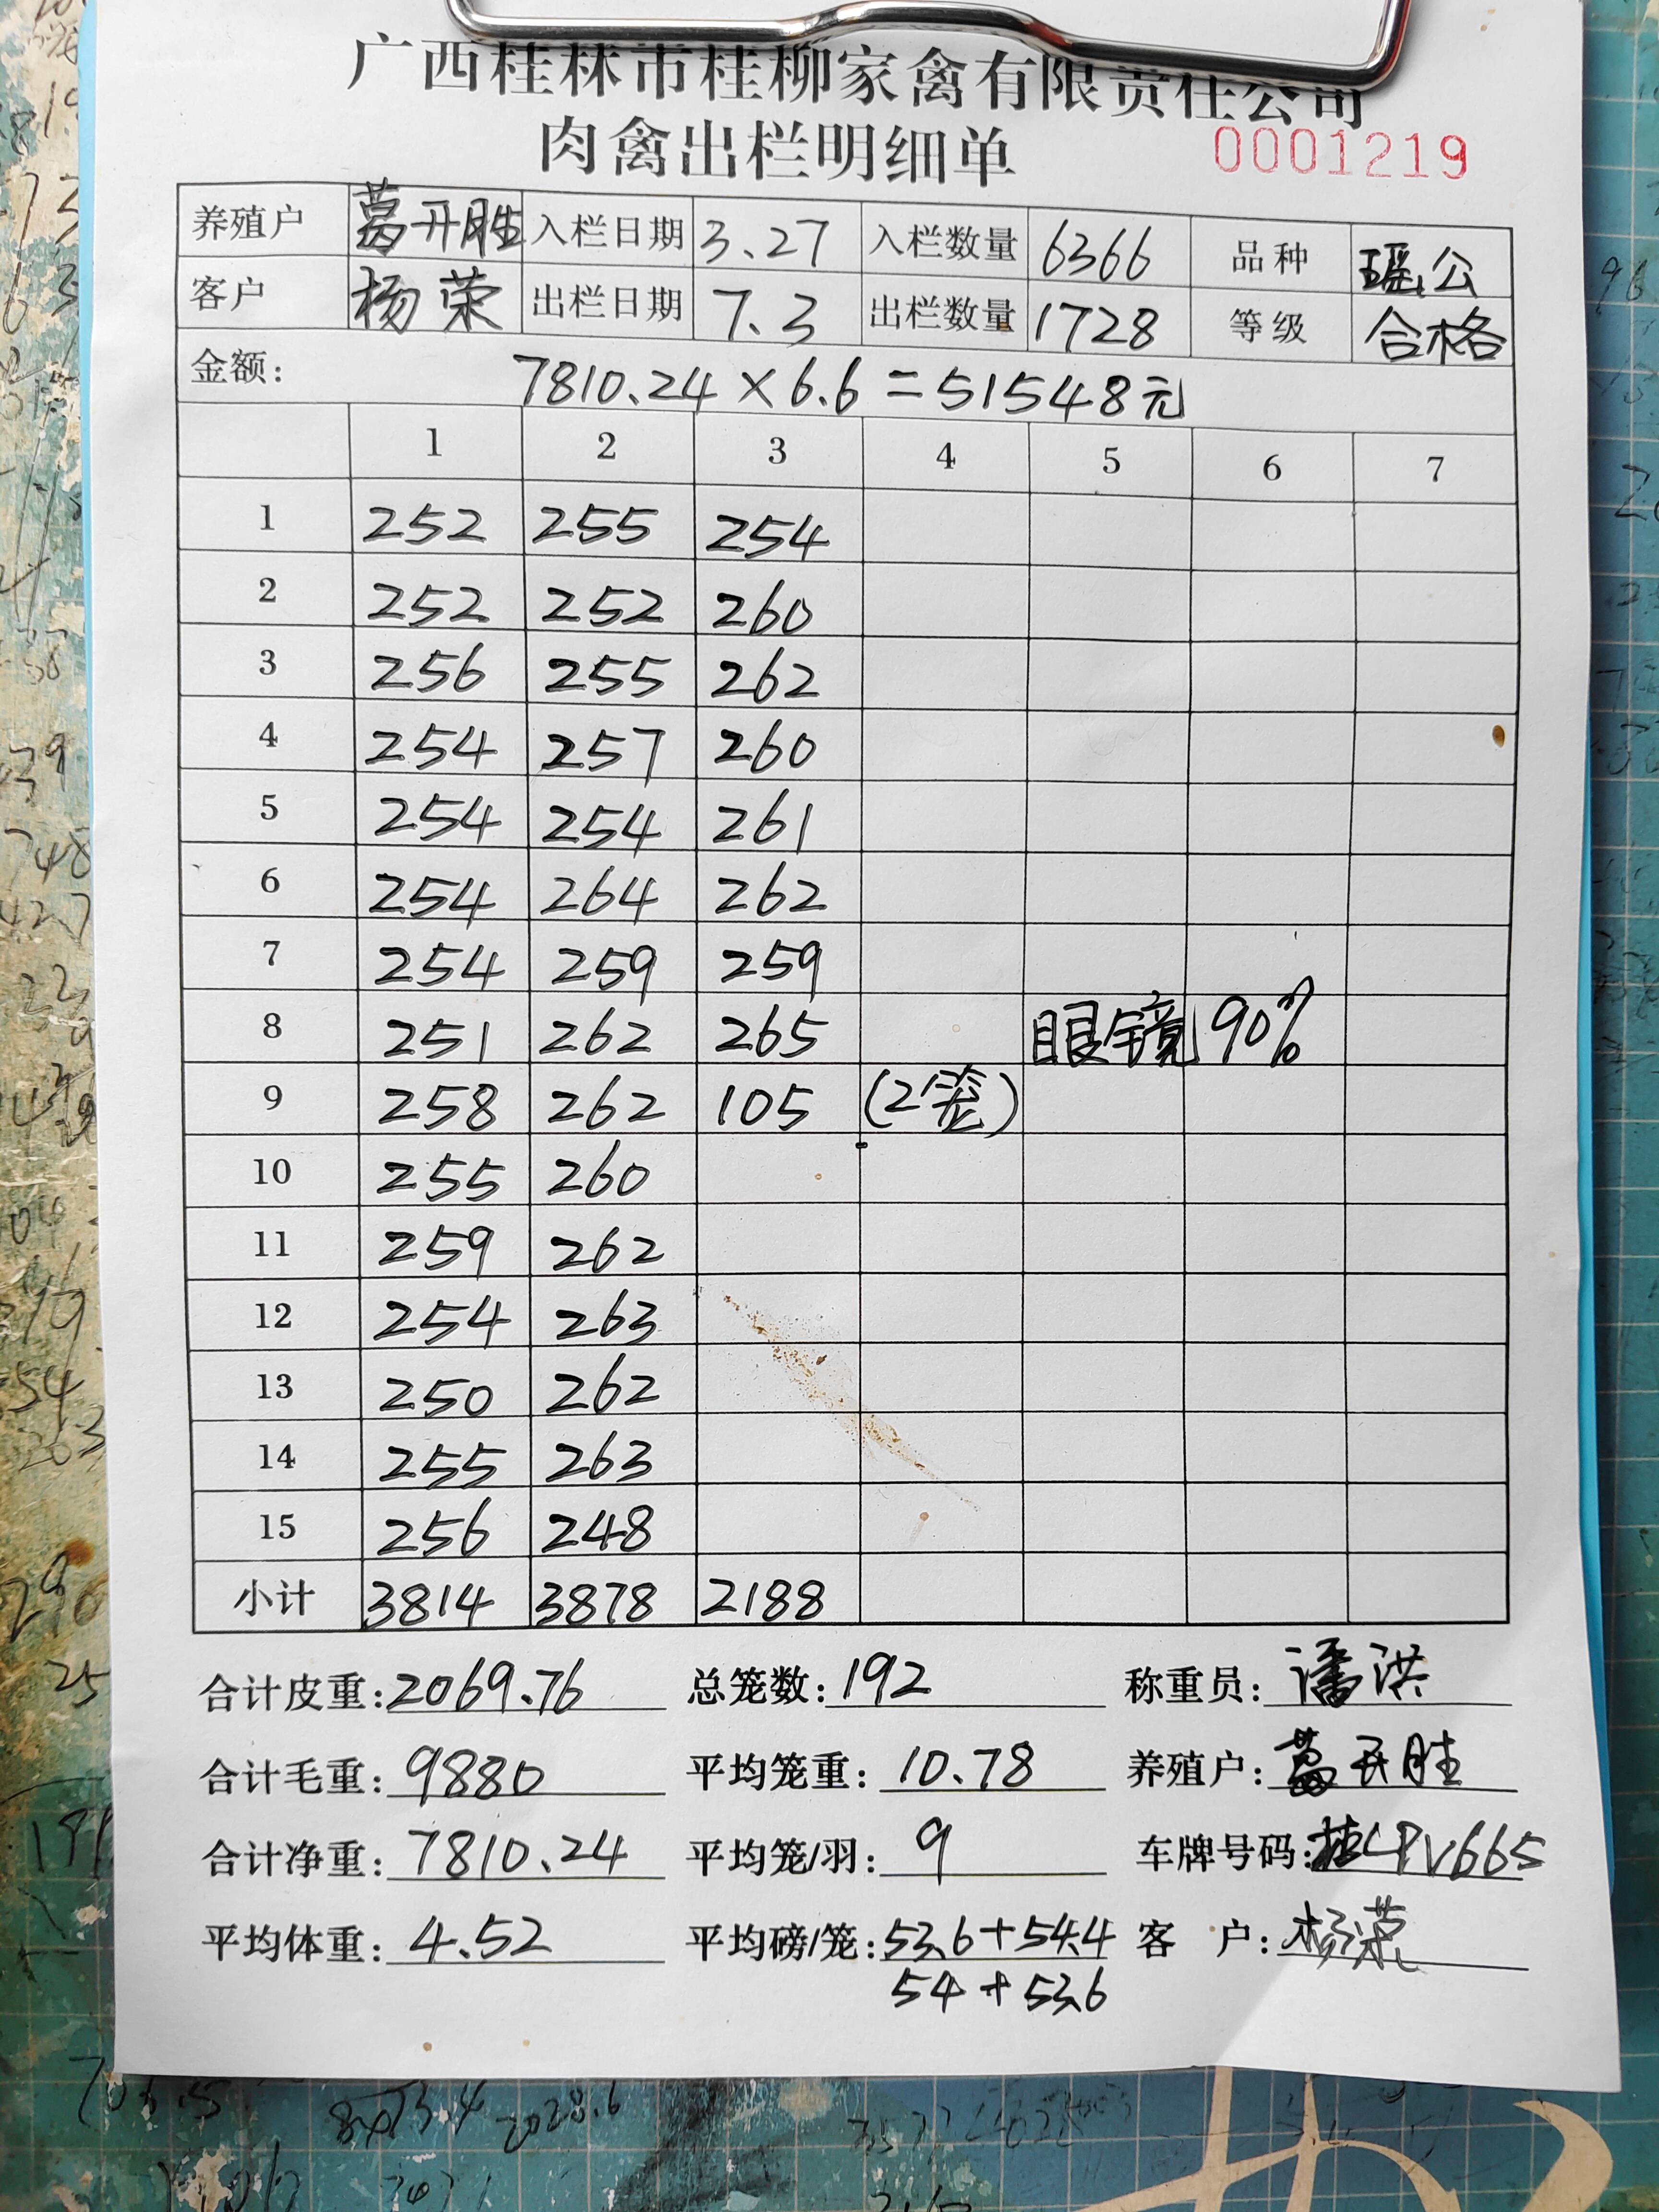 广西桂林市桂柳家禽有限责任公司
肉禽出栏明细单 0001219
养殖户 葛开胜 入栏日期 3.27 入栏数量 6366 品种 瑶公
客户 杨荣 出栏日期 7.3 出栏数量 1728 等级 合格
金额: 7810.24×6.6=51548元
1 2 3 4 5 6 7
1 252 255 254
2 252 252 260
3 256 255 262
4 254 257 260
5 254 254 261
6 254 264 262
7 254 259 259
8 251 262 265 眼镜90%
9 258 262 105 (2笼)
10 255 260
11 259 262
12 254 263
13 250 262
14 255 263
15 256 248
小计 3814 3878 2188
合计皮重: 2069.76 总笼数: 192 称重员: 潘洪
合计毛重: 9880 平均笼重: 10.78 养殖户: 葛开胜
合计净重: 7810.24 平均笼/羽: 9 车牌号码: 桂CPV665
平均体重: 4.52 平均磅/笼: 53.6+54.4 客户: 杨荣
54+53.6